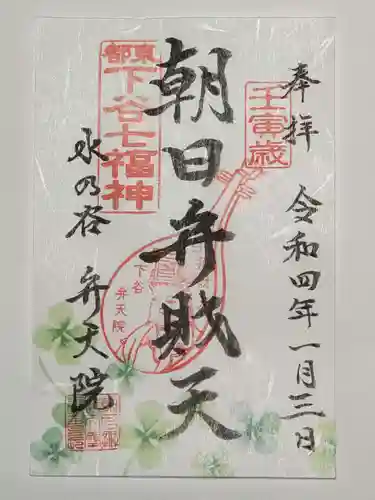 奉拝
令和四年一月三日
壬寅歳
朝日弁財天
東都
下谷七福神
下谷
弁天院
水の谷
弁天院